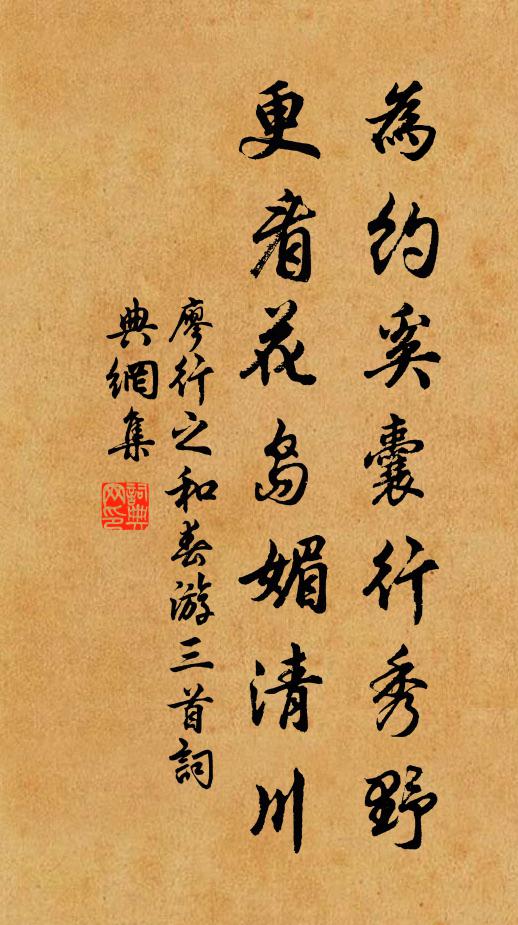 為約奚囊行秀野
更看花島媚清川
廖行之和春游三首詞
典網集
詞典网印